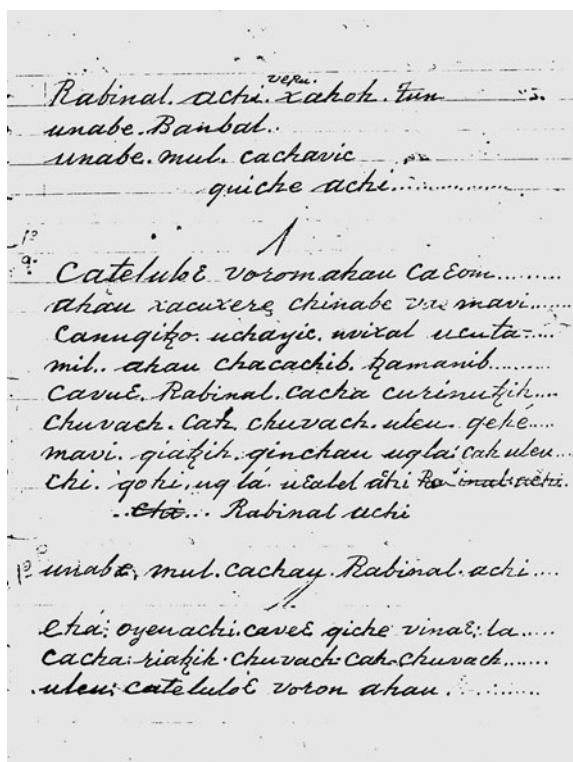 vepu.
Rabinal. achi. xahoh. tun
unabe. Banbal.
unabe. mul. cachavic
quiche achi..............
1
1º
a:
Catelulo ꜫ vorom ahau Caꜫom.........
ahau xacuxere chinabe mavi......
Canugiꜩo. uchayic. uvixal ucuta-....
mil.. ahau chacachib. ꜩamanib.........
cavuꜫ. Rabinal. cacha curinutꜩih....
chuvach. Cah. chuvach. uleu. geké....
mavi. giaꜩih. ginchau ugla: cah uleu...
chi. gohi, ug lá. uꜫalel achi Rabinal achi.
..cha... Rabinal achi
1º unabe, mul. cachay. Rabinal. achi....
1.
ehá: oyeuachi. caveꜫ giche vinaꜫ: la.....
cacha: riaꜩih. chuvach: cah. chuvach.......
uleu: cateluloꜫ voron ahau. ........